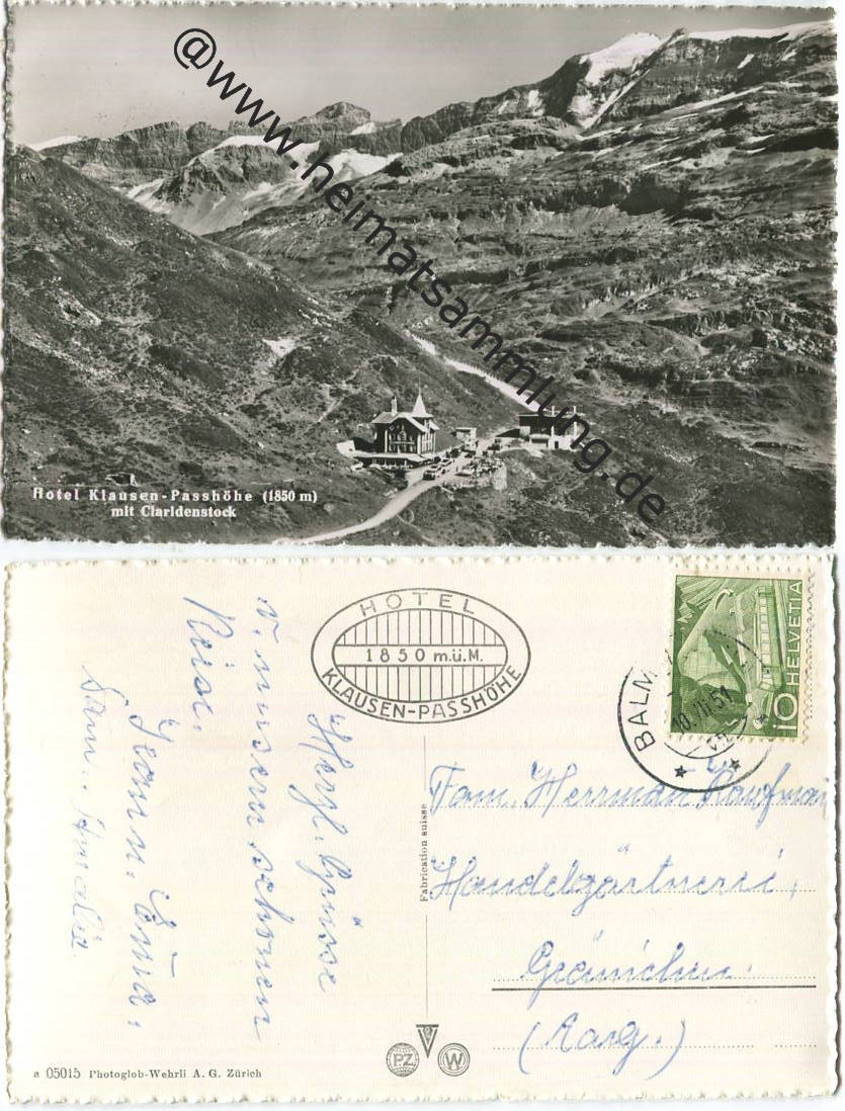 @www.heimatsammlung.de
Hotel Klausen-Passhöhe (1850 m)
mit Claridenstock
HOTEL
1850 m.ü.M.
KLAUSEN-PASSHÖHE
BALM
10.VII.51
10 HELVETIA
Herzl. Grüsse
v. unsern schönen
Reise.
Jean u. Emma.
Fam.
Fam. Herrman Kaufman
Handelsgärtnerei,
Gränichen.
(Aarg.)
Fabrication suisse
PZ W
a 05015 Photoglob-Wehrli A. G. Zürich